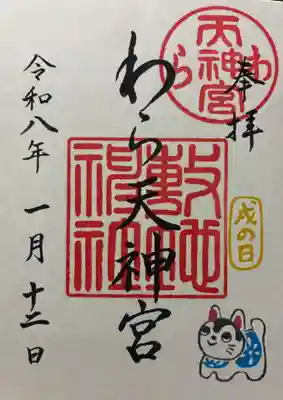 奉拝
わら天神宮
令和八年 一月 十二日
わら天神宮
敷地神社
戌の日